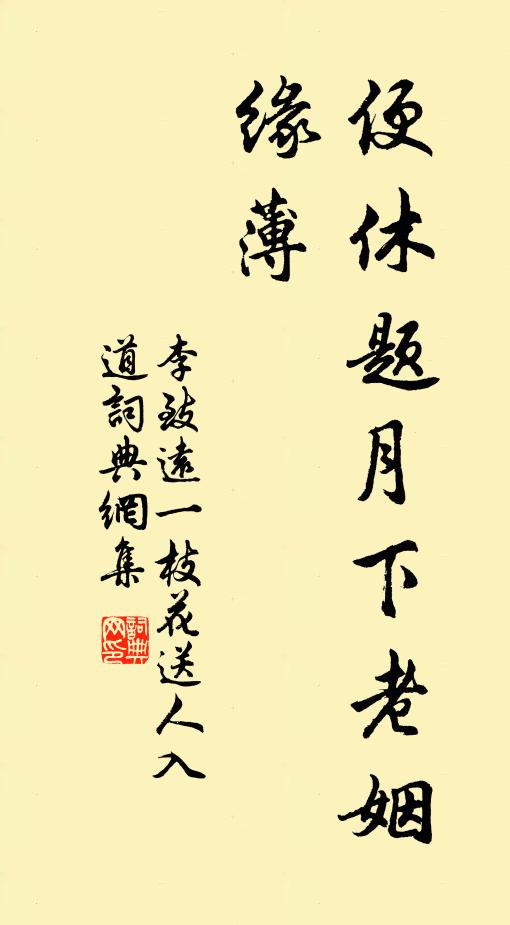 便休题月下老姻
缘薄
李致遠一枝花送人入
道詞典網集
詞典
网印